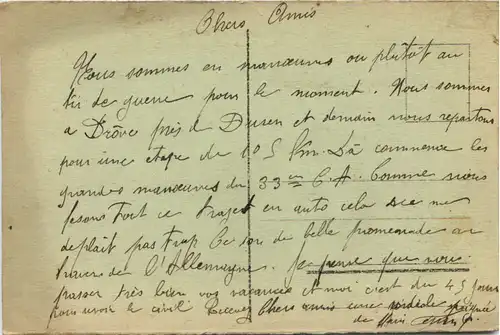 Chers Amis
Nous sommes en manœuvres ou plutôt au
tir de guerre pour le moment. Nous sommes
a Drôve près de Duren et demain nous repartons
pour une etape de 105 Km. Là commence les
grandes manœuvres du 33em C.A. Comme nous
fesons tout ce trajet en auto cela me
deplait pas trop ce son de belle promenade au
travers de l'Allemagne. Je pense que vous
passer très bien vos vacances et moi c'est du 45 jours
pour revoir le civil Recevez Chers amis une cordiale poignée
de Main